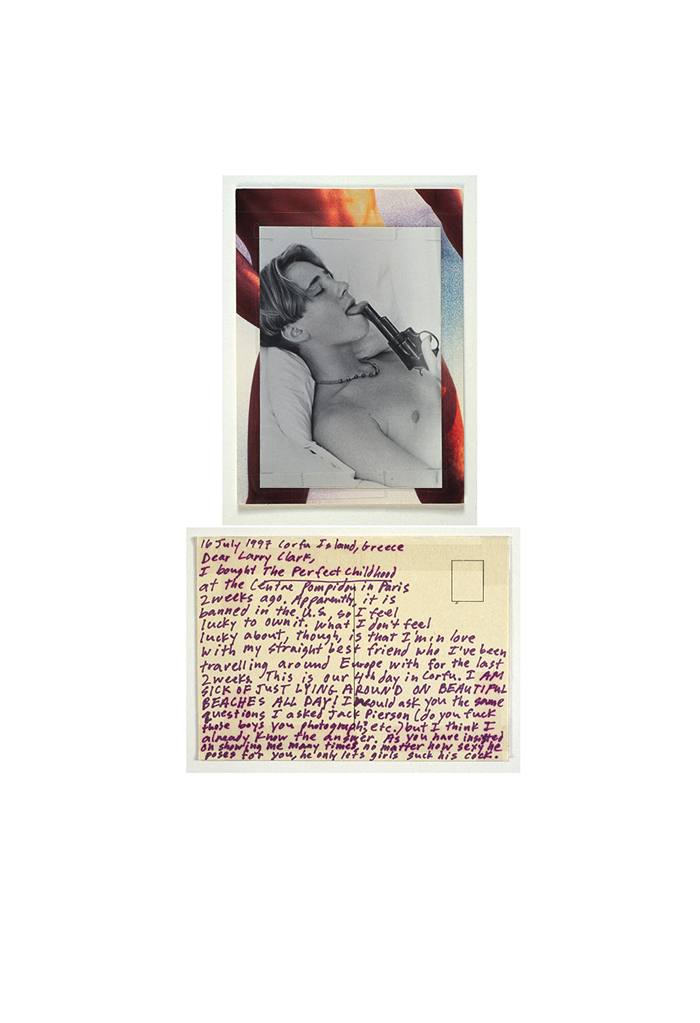 16 July 1997 Corfu Island, Greece
Dear Larry Clark,
I bought The Perfect Childhood
at the Centre Pompidou in Paris
2 weeks ago. Apparently, it is
banned in the U.S., so I feel
lucky to own it. What I don't feel
lucky about, though, is that I'm in love
with my straight best friend who I've been
travelling around Europe with for the last
2 weeks. This is our 4th day in Corfu. I AM
SICK OF JUST LYING AROUND ON BEAUTIFUL
BEACHES ALL DAY! I would ask you the same
questions I asked Jack Pierson (do you fuck
those boys you photograph, etc.) but I think I
already know the answer. As you have insisted
on showing me many times, no matter how sexy he
poses for you, he only lets girls suck his cock.